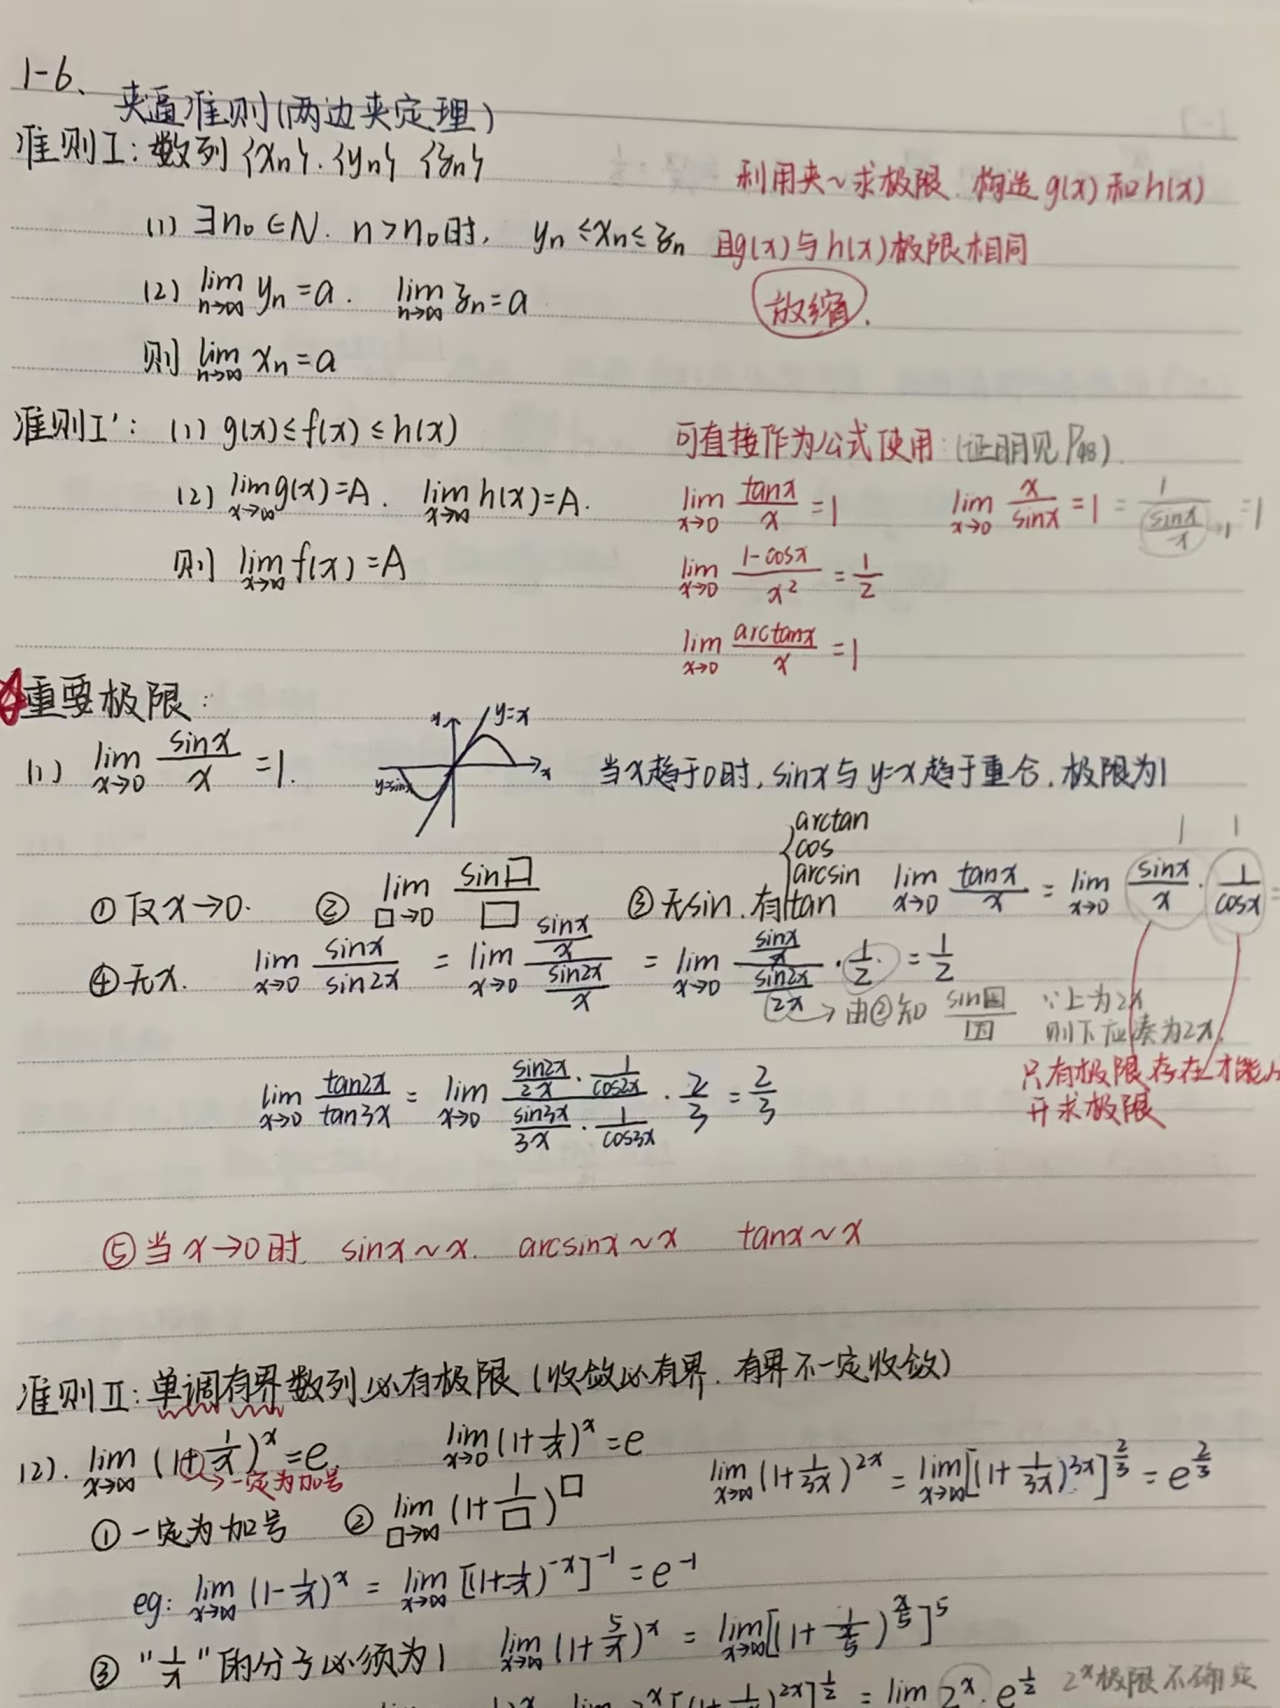 1-6、
夹逼准则(两边夹定理)
准则I：数列{xn}.{yn}{zn}
利用夹~求极限.构造g(x)和h(x)
(1) ∃n₀∈N. n>n₀时, yn≤xn≤zn
且g(x)与h(x)极限相同
(2) lim n→∞ yn=a. lim n→∞ zn=a
放缩.
则 lim n→∞ xn=a
准则I'：(1) g(x)≤f(x)≤h(x)
可直接作为公式使用：(证明见P48).
(2) lim x→∞ g(x)=A. lim x→∞ h(x)=A.
lim x→0 tanx/x =1 lim x→0 x/sinx =1 = 1/(sinx/x)→1 =1
则 lim x→∞ f(x)=A
lim x→0 (1-cosx)/x² = 1/2
lim x→0 arctanx/x =1
重要极限：
(1) lim x→0 sinx/x =1.
y=x
y
x
y=sinx
当x趋于0时,sinx与y=x趋于重合.极限为1
①仅x→0. ② lim □→0 sin□/□ ③无sin.有{arctan cos arcsin tan lim x→0 tanx/x = lim x→0 sinx/x · 1/cosx =
1 1
④无x. lim x→0 sinx/sin2x = lim x→0 (sinx/x)/(sin2x/x) = lim x→0 (sinx/x)/(sin2x/2x) · 1/2 · = 1/2
→由②知 sin□/□ ∵上为2x
则下应凑为2x.
只有极限存在才能
开求极限
lim x→0 tan2x/tan3x = lim x→0 (sin2x/2x · 1/cos2x)/(sin3x/3x · 1/cos3x) · 2/3 = 2/3
⑤当x→0时 sinx~x. arcsinx~x tanx~x
准则II：单调有界数列必有极限(收敛必有界.有界不一定收敛)
(2). lim x→∞ (1+1/x)^x =e. lim x→0 (1+1/x)^x =e
→一定为加号
lim x→∞ (1+1/3x)^2x = lim x→∞ [(1+1/3x)^3x]^2/3 = e^2/3
①一定为加号 ② lim □→∞ (1+1/□)^□
eg: lim x→∞ (1-1/x)^x = lim x→∞ [(1+1/-x)^-x]^-1 = e^-1
③"1/x"的分子必须为1 lim x→∞ (1+5/x)^x = lim x→∞ [(1+1/(x/5))^x/5]^5
= lim 2^x · e^1/2 2^x极限不确定